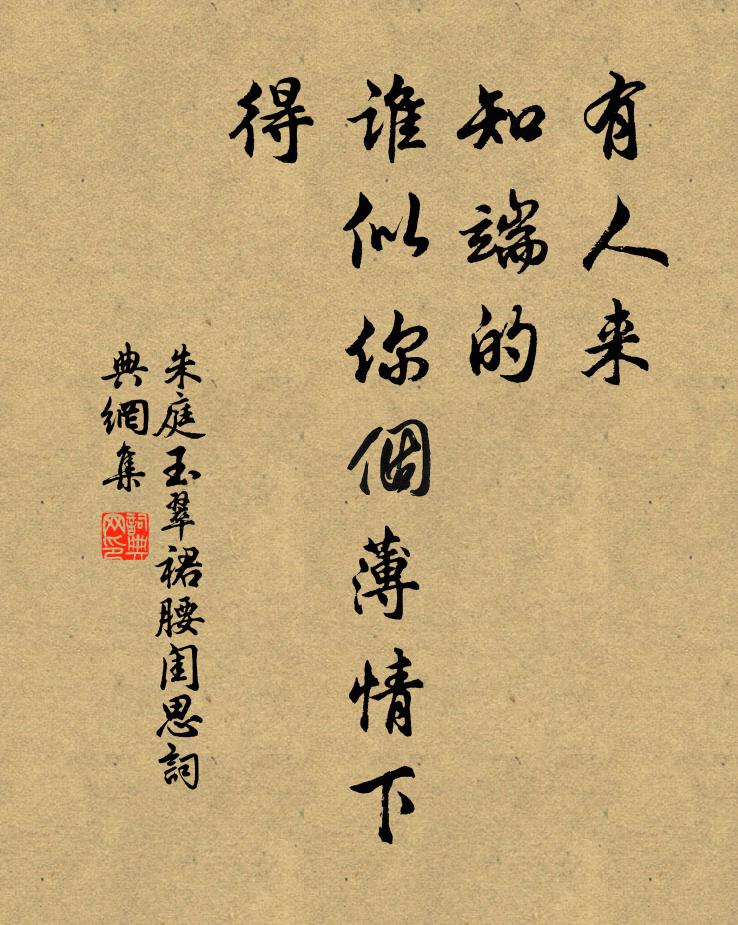 有人来
知端的
谁似你個薄情下
得
朱庭玉翠裙腰闺思詞
典網集
詞典
网印